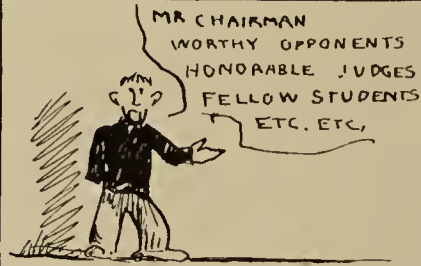 MR CHAIRMAN
WORTHY OPPONENTS
HONORABLE JUDGES
FELLOW STUDENTS
ETC. ETC,